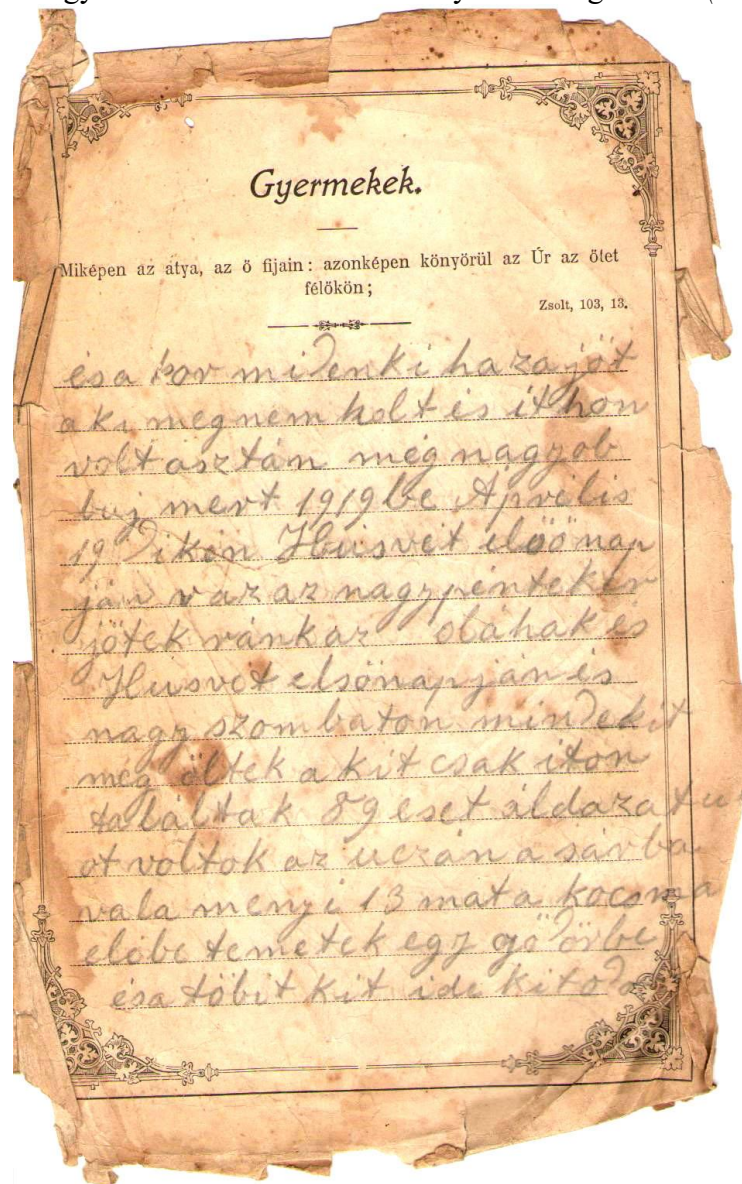 Gyermekek.
Miképen az atya, az ő fijain: azonképen könyörül az Úr az őtet
félőkön;
Zsolt, 103, 13.
ésa kor midenki hazajöt
aki megnem holt és ithon
volt asztán még nagyob
buj mert 1919be Április
19 dikén Húsvét elöőnap
ján vaz az nagypéntekén
jötek ránkaz oláhak és
Husvet elsőnapján is
nagy szombaton mindekit
meg öltek a kit csak iton
találtak 89 eset áldazatu
ot voltok az uczán a sárba
vala menyi 13 mat a kocsma
előbe temetek egy gödörbe
ésa töbit kit ide kit oda